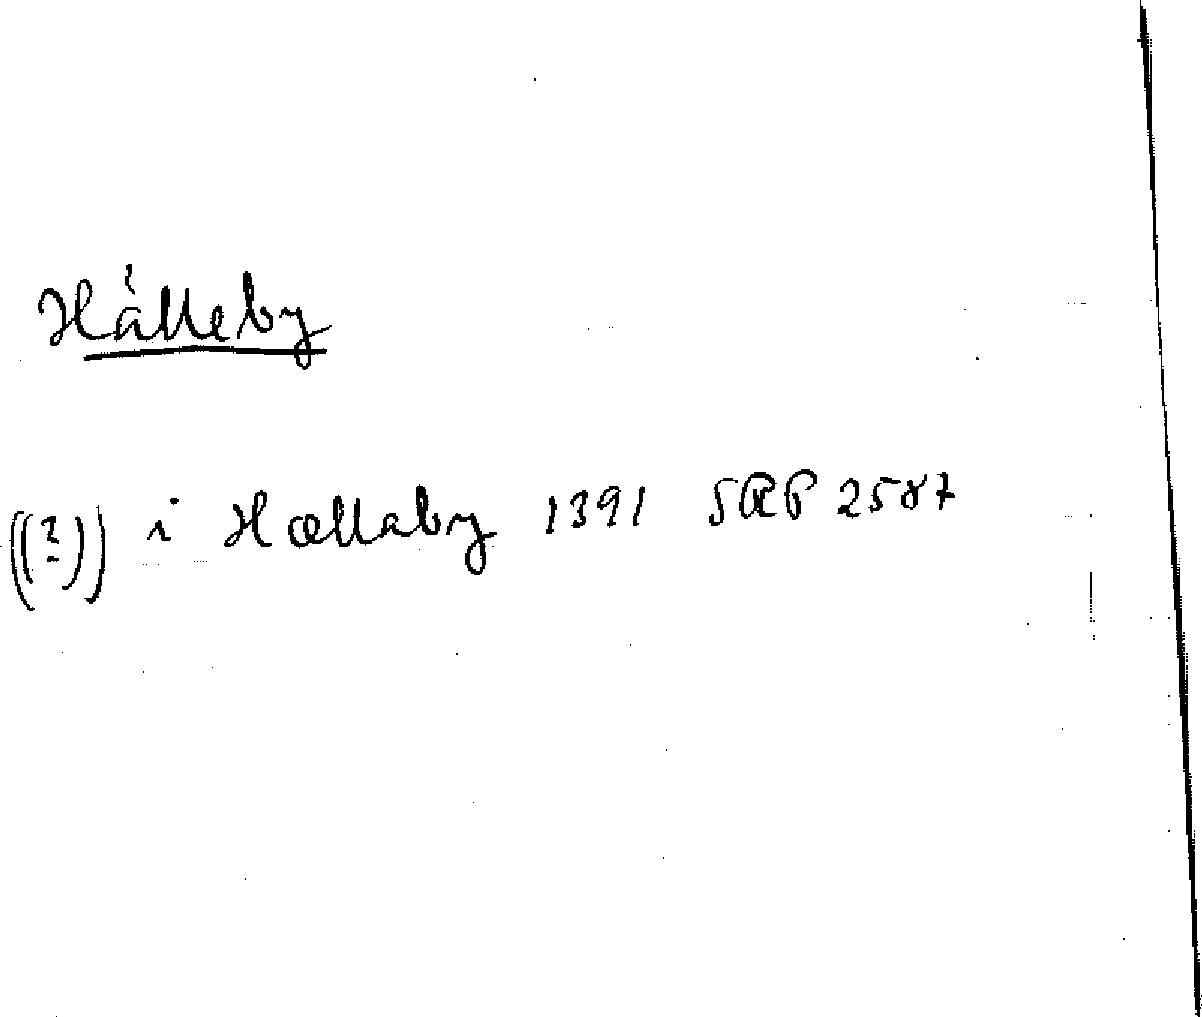 Hålleby
((?)) i Hællaby 1391 SRP 2587